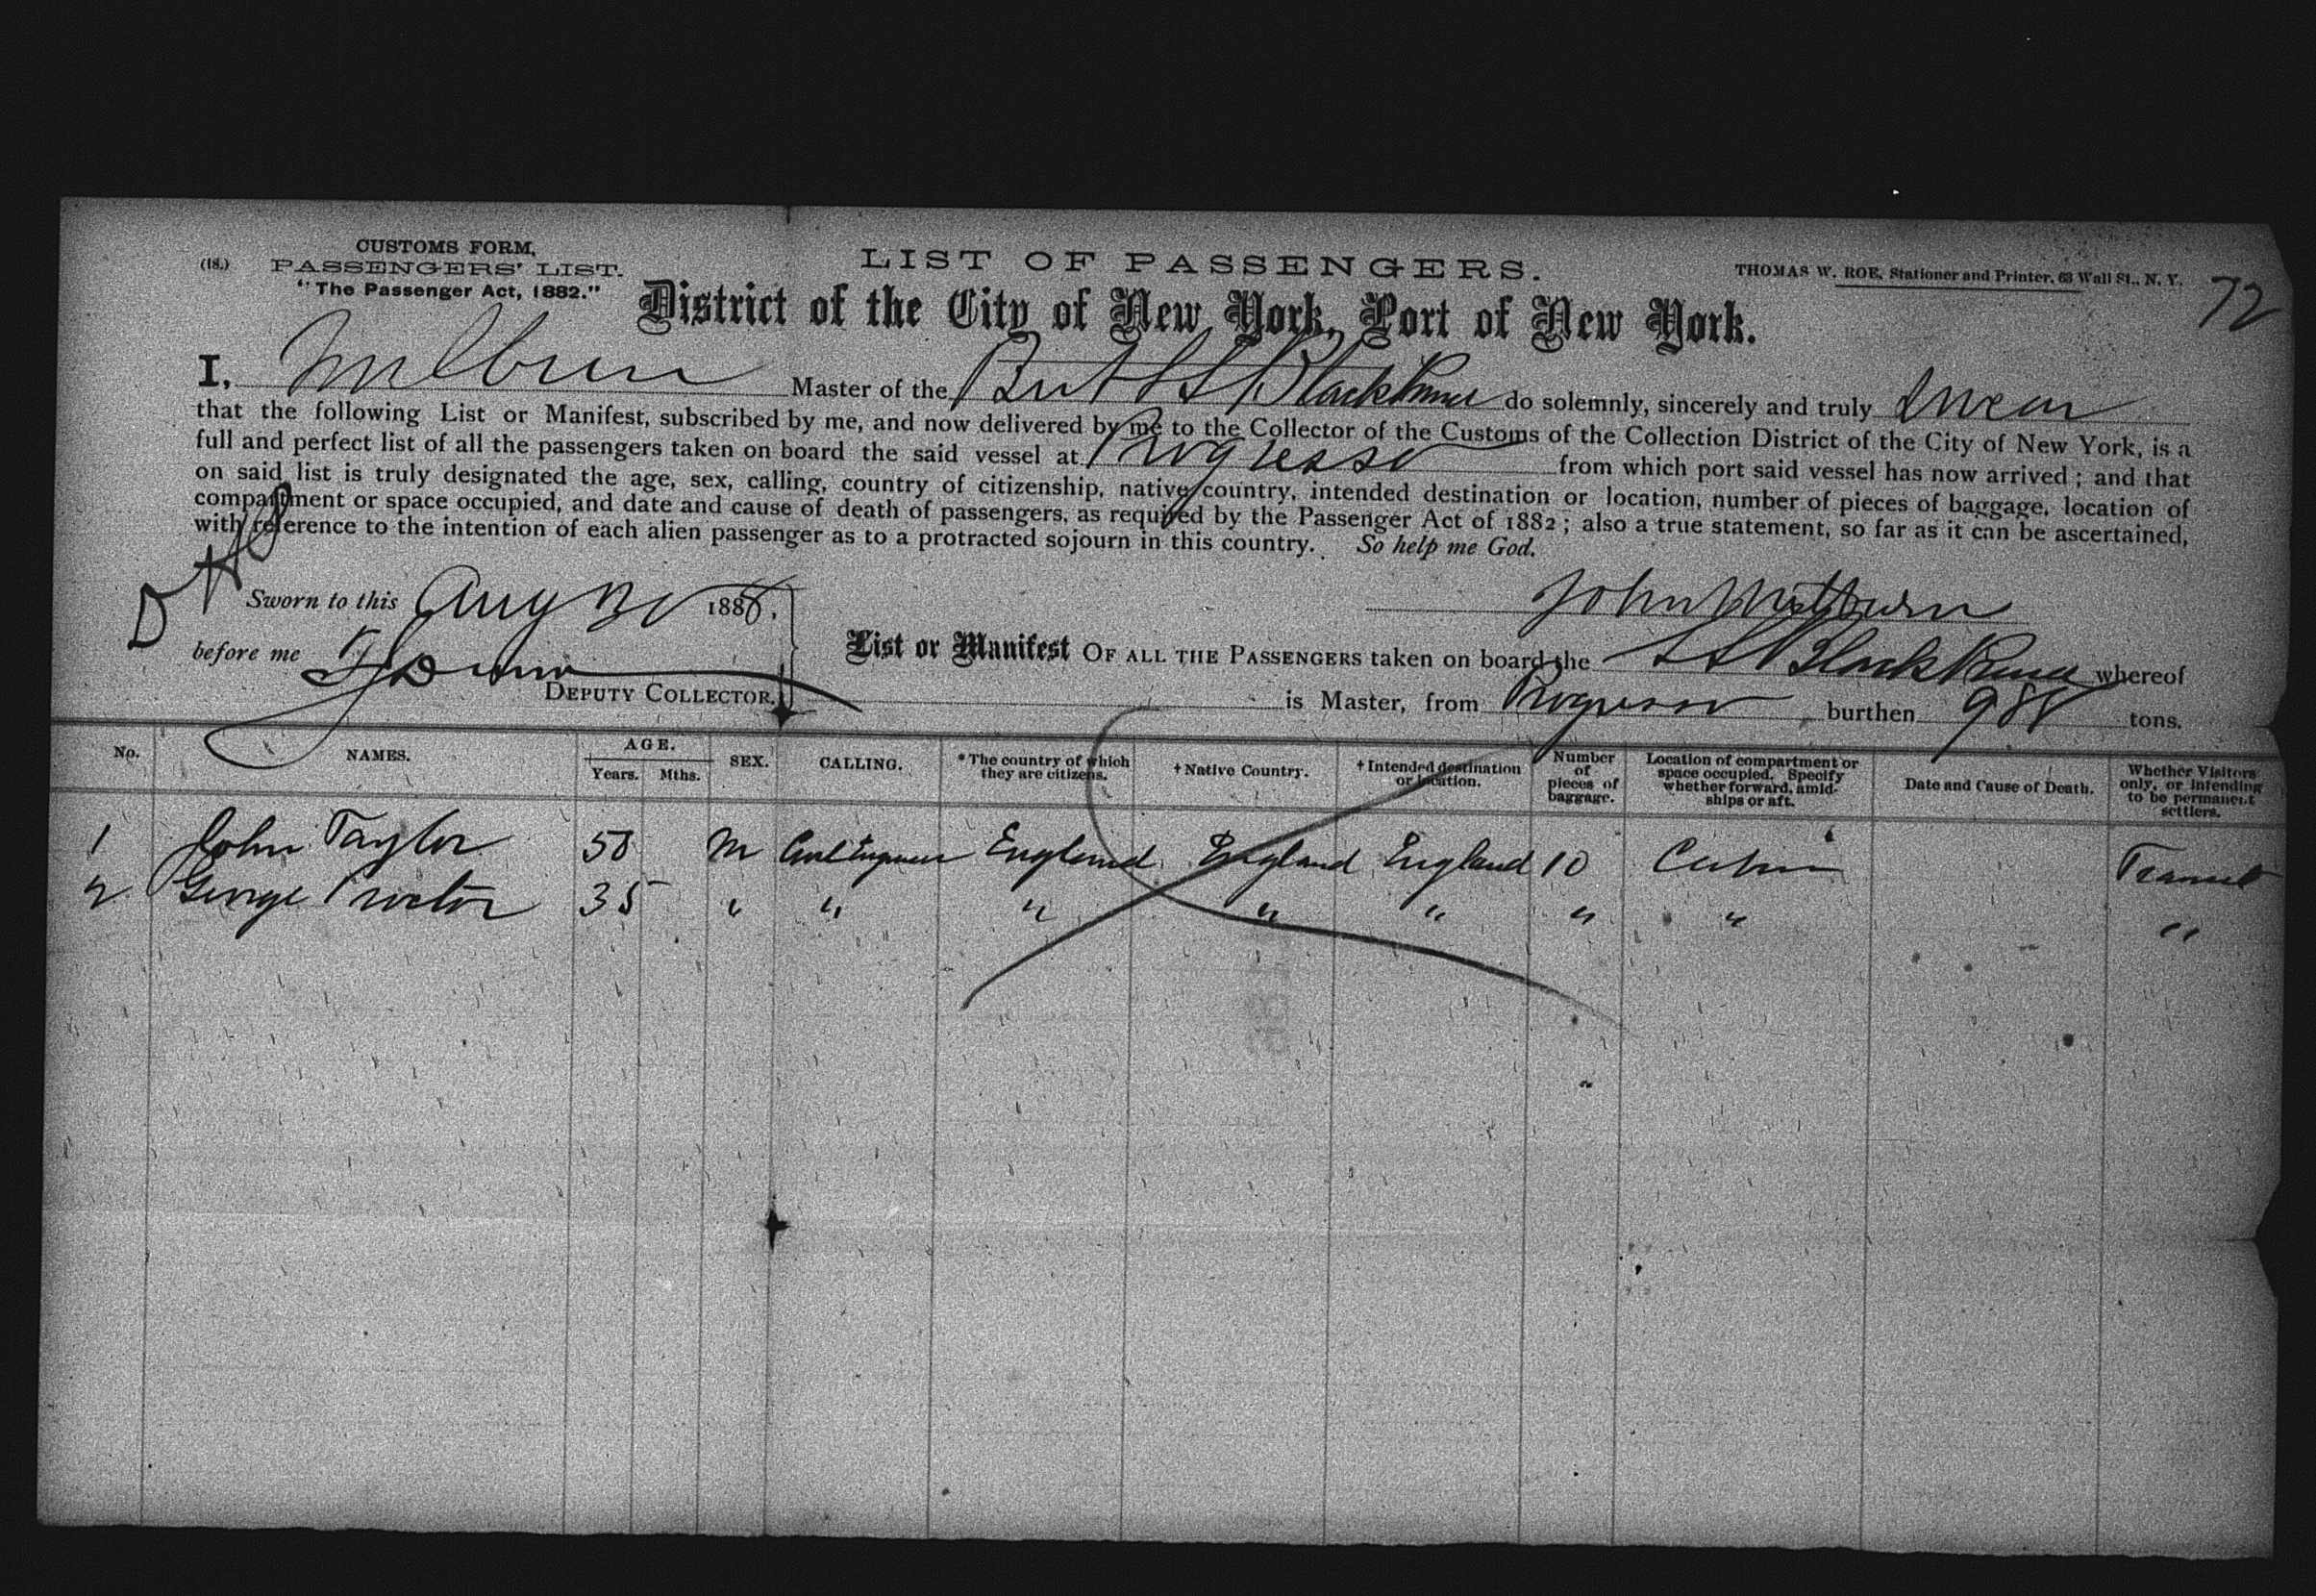 CUSTOMS FORM,
(18.) PASSENGERS' LIST.
"The Passenger Act, 1882."
LIST OF PASSENGERS.
THOMAS W. ROE, Stationer and Printer, 63 Wall St., N. Y.
72
District of the City of New York, Port of New York.
I, Milburn Master of the Brit SS Black Prince do solemnly, sincerely and truly swear
that the following List or Manifest, subscribed by me, and now delivered by me to the Collector of the Customs of the Collection District of the City of New York, is a
full and perfect list of all the passengers taken on board the said vessel at Progresso from which port said vessel has now arrived; and that
on said list is truly designated the age, sex, calling, country of citizenship, native country, intended destination or location, number of pieces of baggage, location of
compartment or space occupied, and date and cause of death of passengers, as required by the Passenger Act of 1882; also a true statement, so far as it can be ascertained,
with reference to the intention of each alien passenger as to a protracted sojourn in this country. So help me God.
Sworn to this Aug 188
John Milburn
before me
List or Manifest OF ALL THE PASSENGERS taken on board the SS Black Prince whereof
DEPUTY COLLECTOR.
is Master, from Progresso burthen 988 tons.
No. NAMES. AGE. Years. Mths. SEX. CALLING. *The country of which they are citizens. †Native Country. †Intended destination or location. Number of pieces of baggage. Location of compartment or space occupied. Specify whether forward, amidships or aft. Date and Cause of Death. Whether Visitors only, or intending to be permanent settlers.
1 John Taylor 58 M Civil Engineer England England England 10 Cabin Transit
2 George Proctor 35 " " " " " " " "